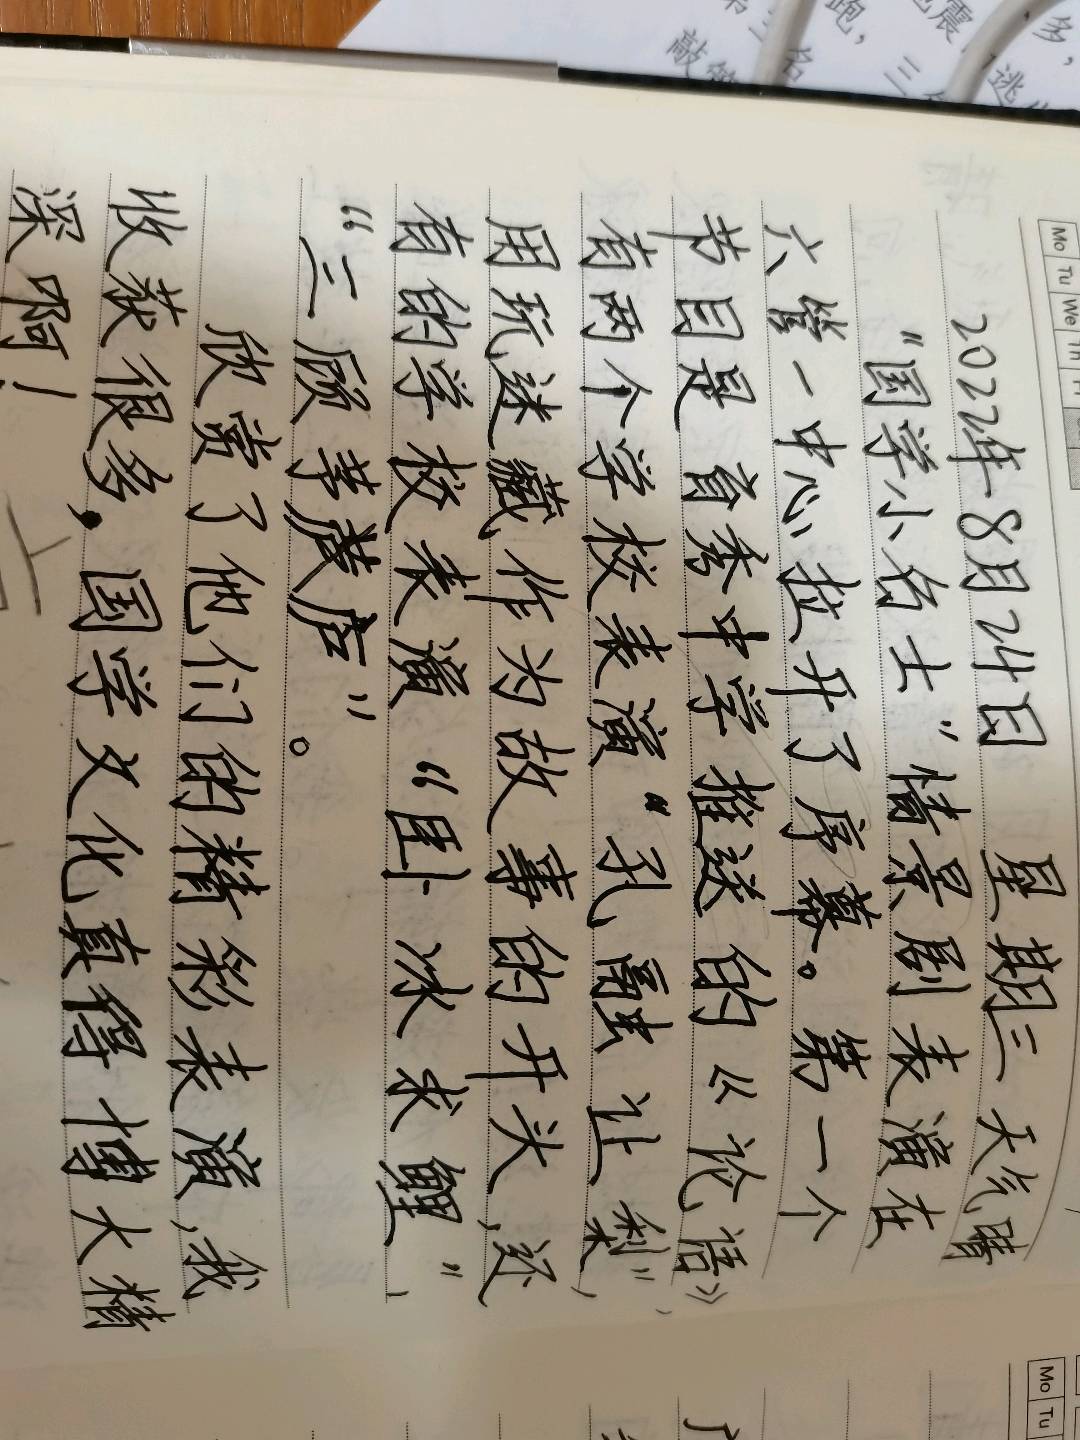 Mo Tu We Th Fr
2022年8月24日 星期三 天气晴
“国学小名士”情景剧表演在
六管一中心拉开了序幕。第一个
节目是育秀中学推送的《论语》,
有两个学校表演“孔融让梨”,
用玩迷藏作为故事的开头,还
有的学校表演“卧冰求鲤”、
“三顾茅庐”。
欣赏了他们的精彩表演,我
收获很多,国学文化真得博大精
深啊!
Mo Tu
多,
震,逃
跑,三
名
敲